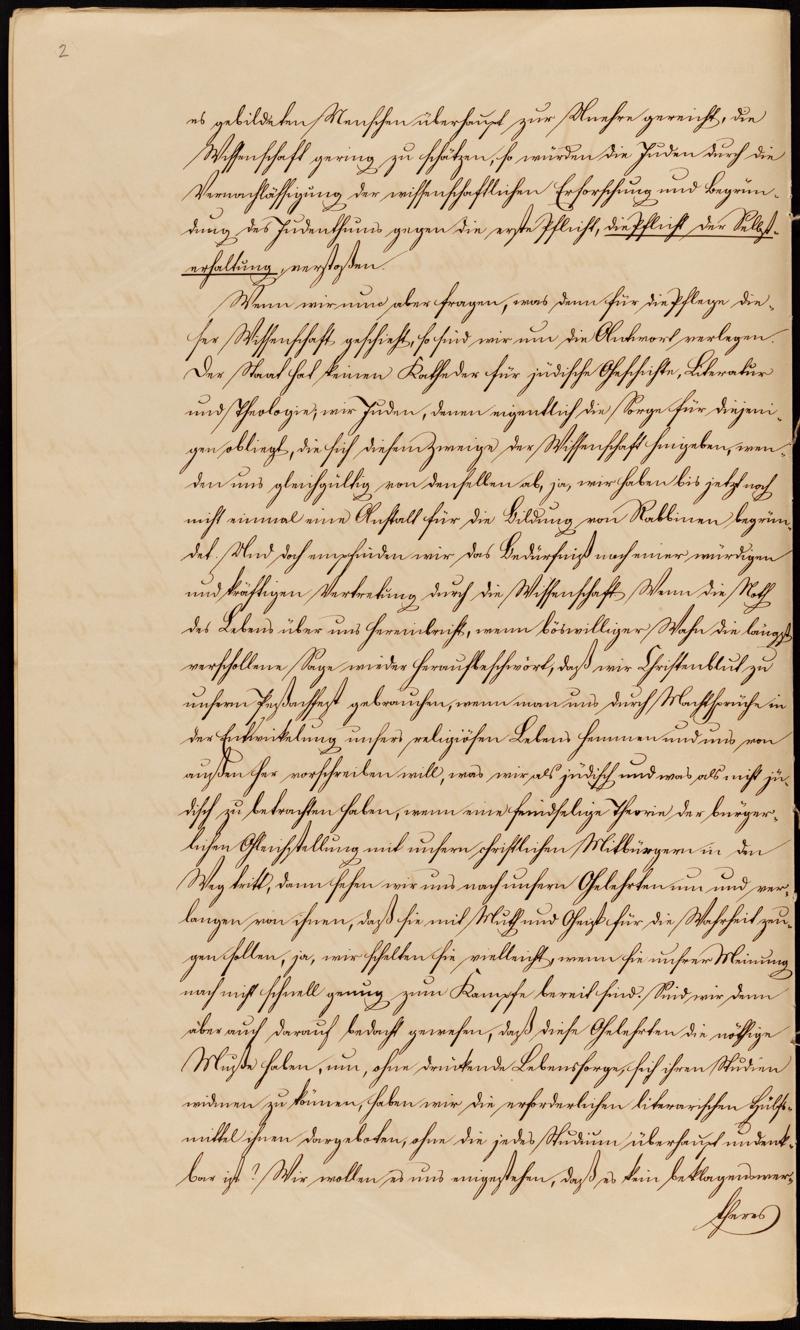 2
es gebildeten Menschen überhaupt zur Unehre gereicht, die
Wissenschaft gering zu schätzen, so würden die Juden durch die
Vernachlässigung der wissenschaftlichen Erforschung und Begrün-
dung des Judenthums gegen die erste Pflicht, die Pflicht der Selbst-
erhaltung, verstoßen.
Wenn wir nun aber fragen, was denn für die Pflege die-
ser Wissenschaft geschieht, so sind wir um die Antwort verlegen.
Der Staat hat keinen Katheder für jüdische Geschichte, Literatur
und Theologie; wir Juden, denen eigentlich die Sorge für diejeni-
gen obliegt, die sich diesem Zweige der Wissenschaft hingeben, wen-
den uns gleichgültig von denselben ab, ja, wir haben bis jetzt noch
nicht einmal eine Anstalt für die Bildung von Rabbinen begrün-
det. Und doch empfinden wir das Bedürfniß nach einer würdigen
und kräftigen Vertretung durch die Wissenschaft. Wenn die Noth
des Lebens über uns hereinbricht, wenn böswilliger Wahn die längst
verschollene Sage wieder heraufbeschwört, daß wir Christenblut zu
unserm Peßachfest gebrauchen, wenn man uns durch Machtsprüche in
der Entwickelung unsers religiösen Lebens hemmen und uns von
außen her vorschreiben will, was wir als jüdisch und was als nicht jü-
disch zu betrachten haben, wenn eine feindselige Theorie der bürger-
lichen Gleichstellung mit unsern christlichen Mitbürgern in den
Weg tritt, dann sehen wir uns nach unsern Gelehrten um und ver-
langen von ihnen, daß sie mit Muth und Geist für die Wahrheit zeu-
gen sollen, ja, wir schelten sie vielleicht, wenn sie unsrer Meinung
nach nicht schnell genug zum Kampfe bereit sind. Sind wir denn
aber auch darauf bedacht gewesen, daß diese Gelehrten die nöthige
Muße haben, um, ohne drückende Lebenssorge, sich ihren Studien
widmen zu können, haben wir die erforderlichen literarischen Hülfs-
mittel ihnen dargeboten, ohne die jedes Studium überhaupt undenk-
bar ist? Wir wollen es uns eingestehen, daß es kein beklagenswer-
theres